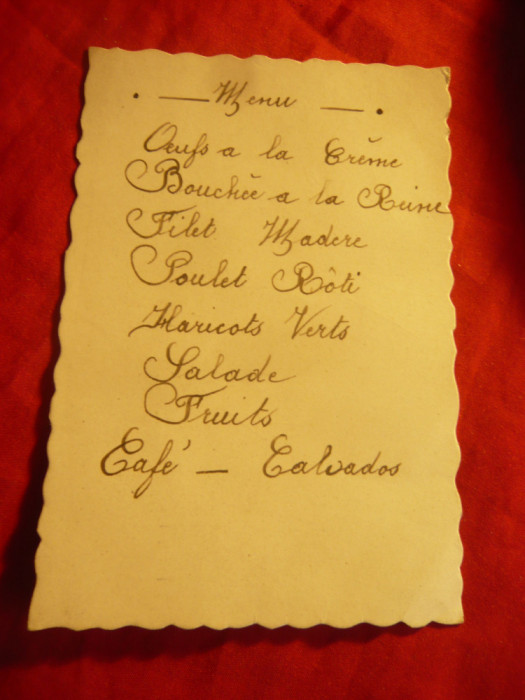 . — Menu — .
Œufs a la Crême
Bouchée a la Reine
Filet Madere
Poulet Rôti
Haricots Verts
Salade
Fruits
Café — Calvados